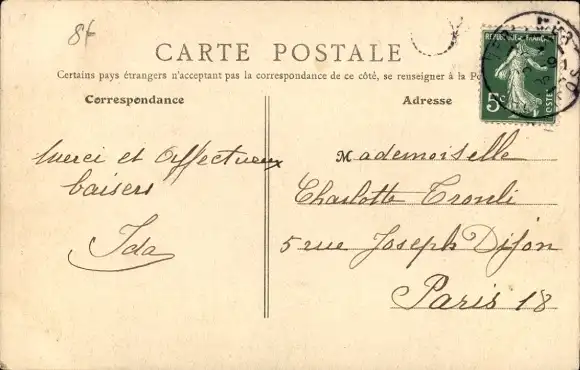 8f
CARTE POSTALE
Certains pays étrangers n'acceptant pas la correspondance de ce côté, se renseigner à la
Correspondance
Adresse
REPUBLIQUE FRANÇAISE
5c
POSTES
Merci et Affectueux
baisers
Ida
Mademoiselle
Charlotte Tronli
5 rue Joseph Dijon
Paris 18